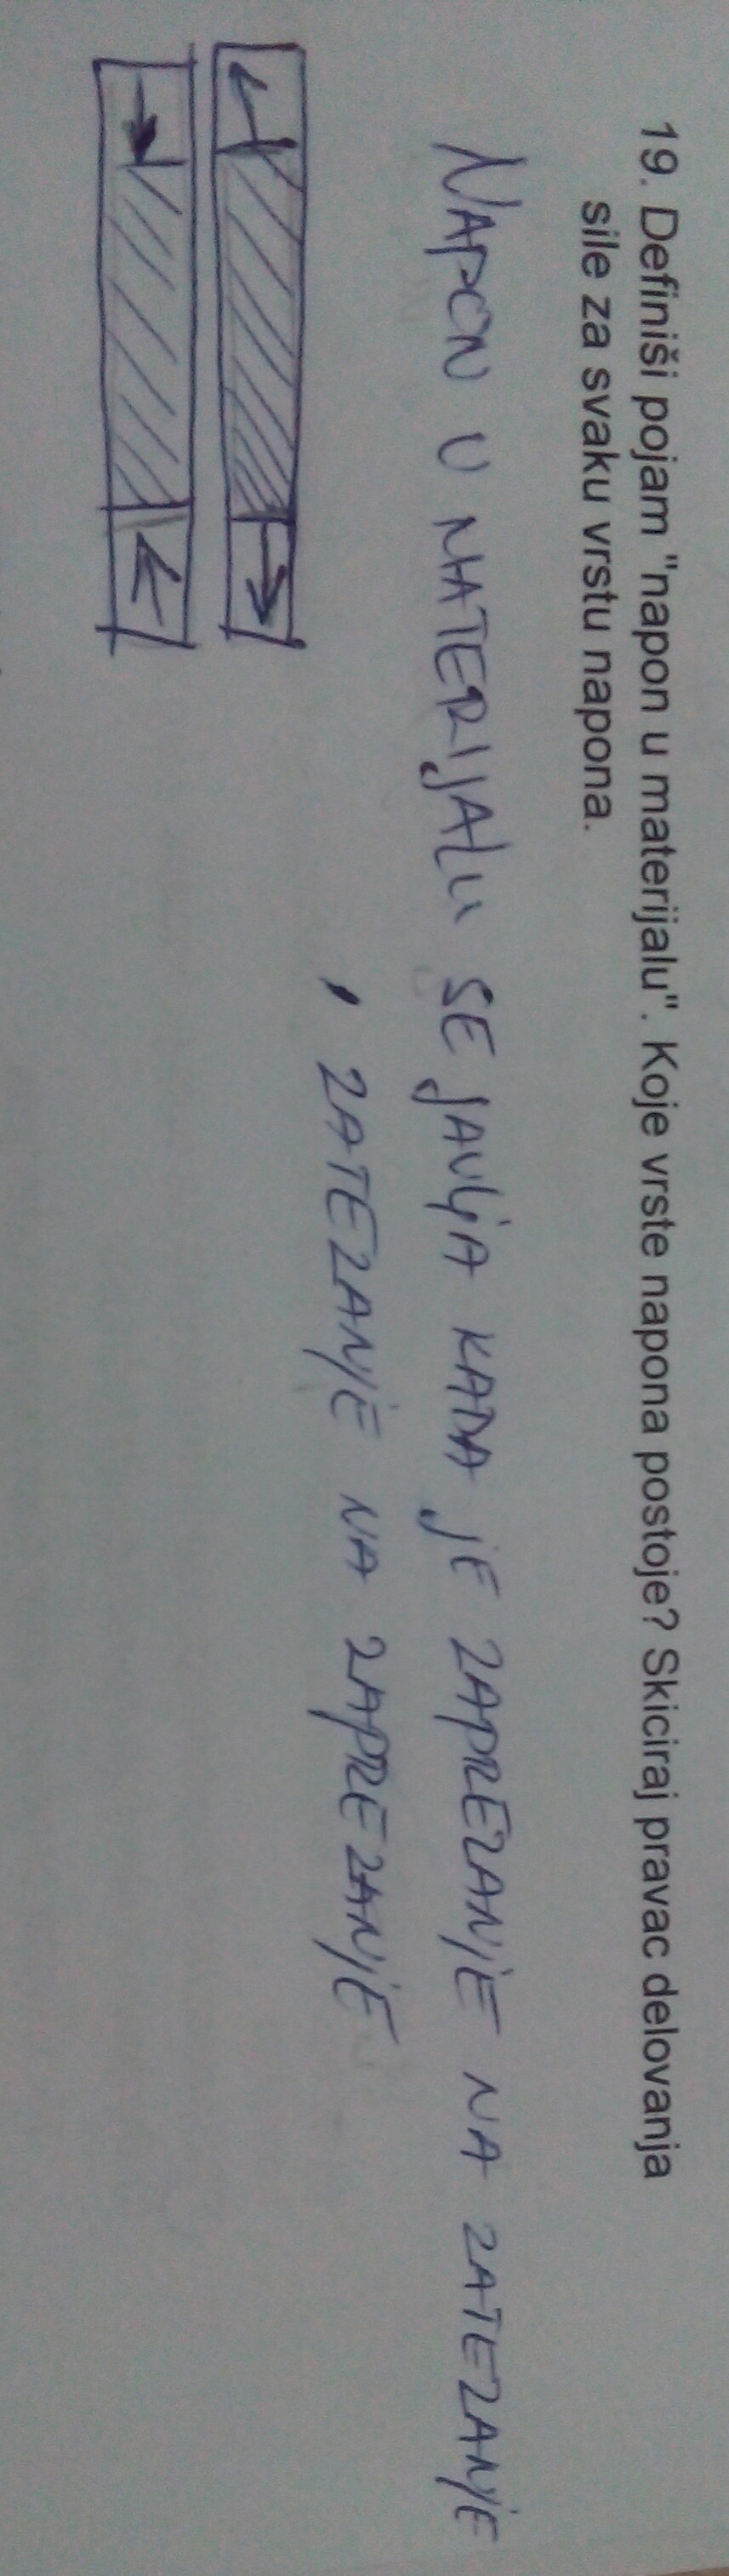 19. Definiši pojam "napon u materijalu". Koje vrste napona postoje? Skiciraj pravac delovanja
sile za svaku vrstu napona.
NAPON U MATERIJALU SE JAVLJA KADA JE ZAPREZANJE NA ZATEZANJE
, ZATEZANJE NA ZAPREZANJE